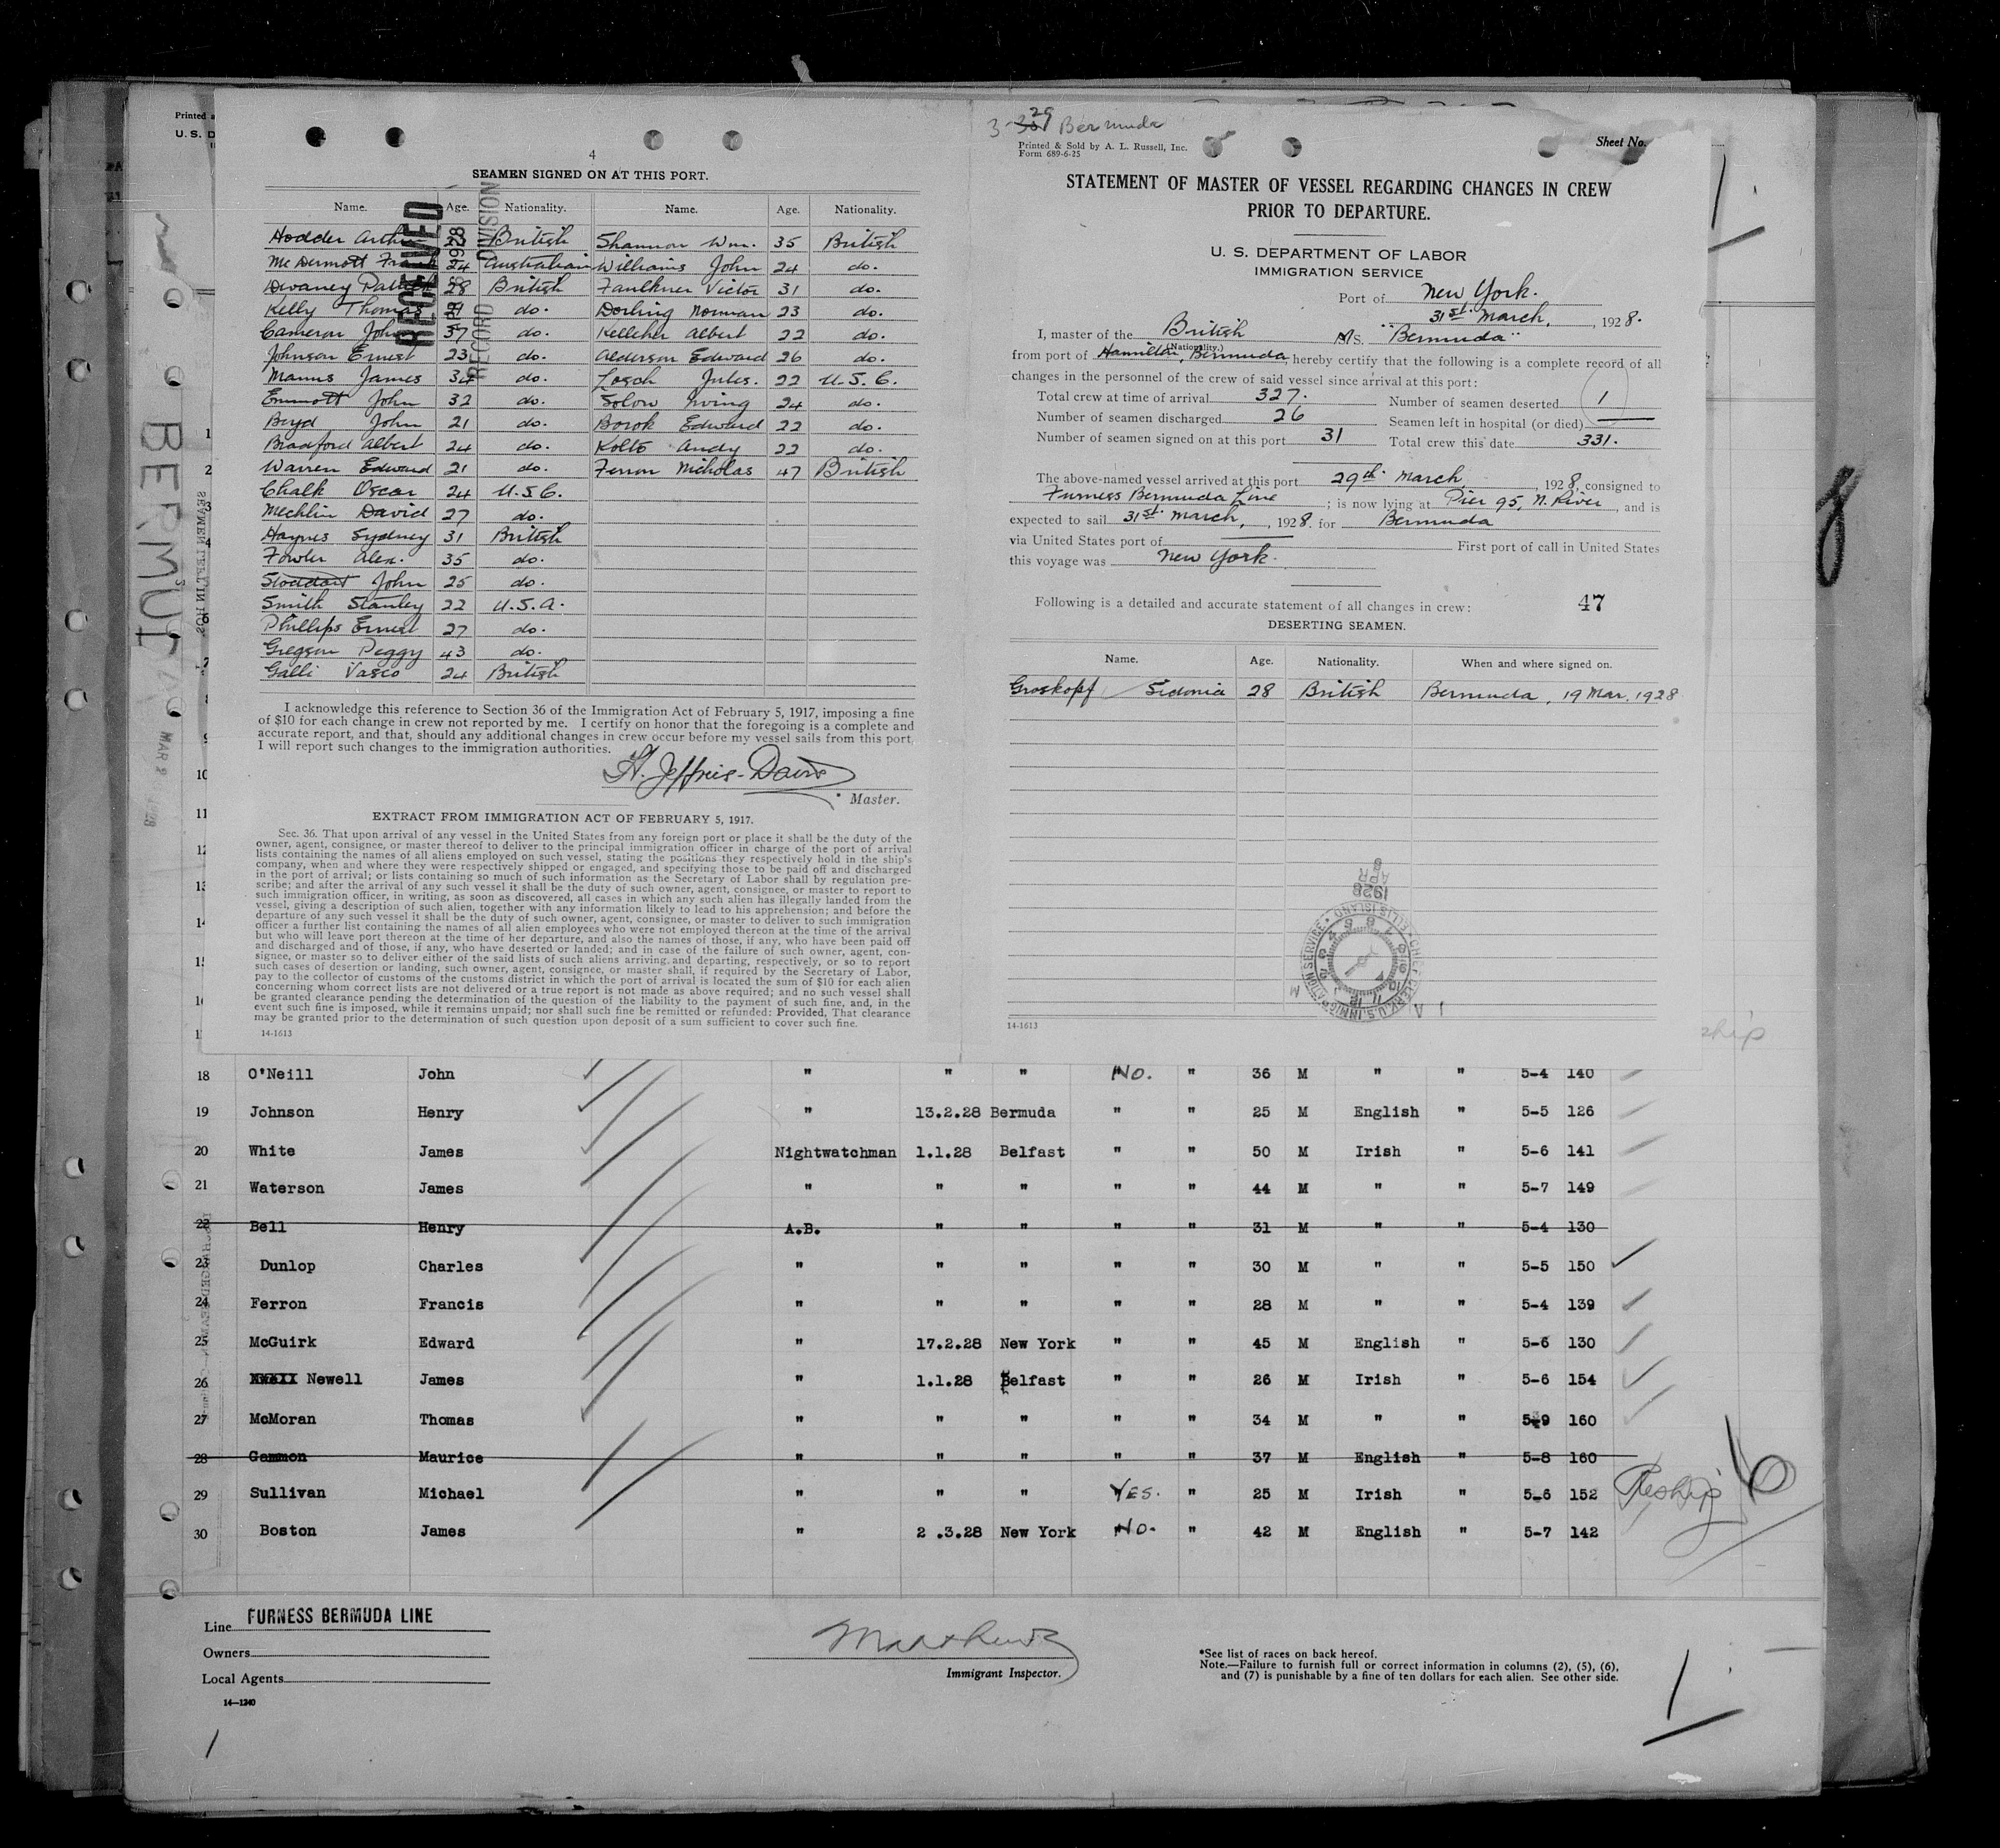 3-29 Bermuda
Printed a
U. S. D
4
SEAMEN SIGNED ON AT THIS PORT.
Name. Age. Nationality. Name. Age. Nationality.
Hodder Arthur British Shannon Wm. 35 British
McDermott Frank 24 Australian Williams John 24 do.
Devaney Patrick 28 British Faulkner Victor 31 do.
Kelly Thomas do. Dorling Norman 23 do.
Cameron John 37 do. Kelleher Albert 22 do.
Johnson Ernest 23 do. Alderson Edward 26 do.
Manus James 34 do. Losch Jules. 22 U.S.C.
Emmott John 32 do. Solow Irving 24 do.
Boyd John 21 do. Borok Edward 22 do.
Bradford Albert 24 do. Kolts Andy 22 do.
Warren Edward 21 do. Ferron Nicholas 47 British
Chalk Oscar 24 U.S.C.
Mechlin David 27 do.
Haynes Sydney 31 British
Fowler Alex. 35 do.
Stoddart John 25 do.
Smith Stanley 22 U.S.A.
Phillips Ernest 27 do.
Gregson Peggy 43 do.
Galli Vasco 24 British
RECEIVED
1928
RECORD DIVISION
I acknowledge this reference to Section 36 of the Immigration Act of February 5, 1917, imposing a fine
of $10 for each change in crew not reported by me. I certify on honor that the foregoing is a complete and
accurate report, and that, should any additional changes in crew occur before my vessel sails from this port,
I will report such changes to the immigration authorities.
H. Jeffries-Davis
Master.
EXTRACT FROM IMMIGRATION ACT OF FEBRUARY 5, 1917.
Sec. 36. That upon arrival of any vessel in the United States from any foreign port or place it shall be the duty of the
owner, agent, consignee, or master thereof to deliver to the principal immigration officer in charge of the port of arrival
lists containing the names of all aliens employed on such vessel, stating the positions they respectively hold in the ship's
company, when and where they were respectively shipped or engaged, and specifying those to be paid off and discharged
in the port of arrival; or lists containing so much of such information as the Secretary of Labor shall by regulation pre-
scribe; and after the arrival of any such vessel it shall be the duty of such owner, agent, consignee, or master to report to
such immigration officer, in writing, as soon as discovered, all cases in which any such alien has illegally landed from the
vessel, giving a description of such alien, together with any information likely to lead to his apprehension; and before the
departure of any such vessel it shall be the duty of such owner, agent, consignee, or master to deliver to such immigration
officer a further list containing the names of all alien employees who were not employed thereon at the time of the arrival
but who will leave port thereon at the time of her departure, and also the names of those, if any, who have been paid off
and discharged and of those, if any, who have deserted or landed; and in case of the failure of such owner, agent, con-
signee, or master so to deliver either of the said lists of such aliens arriving and departing, respectively, or so to report
such cases of desertion or landing, such owner, agent, consignee, or master shall, if required by the Secretary of Labor,
pay to the collector of customs of the customs district in which the port of arrival is located the sum of $10 for each alien
concerning whom correct lists are not delivered or a true report is not made as above required; and no such vessel shall
be granted clearance pending the determination of the question of the liability to the payment of such fine, and, in the
event such fine is imposed, while it remains unpaid; nor shall such fine be remitted or refunded: Provided, That clearance
may be granted prior to the determination of such question upon deposit of a sum sufficient to cover such fine.
14-1613
Printed & Sold by A. L. Russell, Inc.
Form 689-6-25
Sheet No.
STATEMENT OF MASTER OF VESSEL REGARDING CHANGES IN CREW
PRIOR TO DEPARTURE.
U. S. DEPARTMENT OF LABOR
IMMIGRATION SERVICE
Port of New York.
31st March, , 1928.
I, master of the British M/S. "Bermuda"
(Nationality.)
from port of Hamilton, Bermuda, hereby certify that the following is a complete record of all
changes in the personnel of the crew of said vessel since arrival at this port:
Total crew at time of arrival 327. Number of seamen deserted 1
Number of seamen discharged 26 Seamen left in hospital (or died)
Number of seamen signed on at this port 31 Total crew this date 331.
The above-named vessel arrived at this port 29th March, , 1928, consigned to
Furness Bermuda Line ; is now lying at Pier 95, N. River, and is
expected to sail 31st March, , 1928. for Bermuda
via United States port of First port of call in United States
this voyage was New York.
Following is a detailed and accurate statement of all changes in crew: 47
DESERTING SEAMEN.
Name. Age. Nationality. When and where signed on.
Groskopf Sidonia 28 British Bermuda, 19 Mar, 1928
APR 1928
CHIEF CLERK U.S. IMMIGRATION SERVICE ELLIS ISLAND
14-1613
BERMU
18 O'Neill John " " " No. " 36 M " " 5-4 140
19 Johnson Henry " 13.2.28 Bermuda " " 25 M English " 5-5 126
20 White James Nightwatchman 1.1.28 Belfast " " 50 M Irish " 5-6 141
21 Waterson James " " " " " 44 M " " 5-7 149
22 Bell Henry A.B. " " " " 31 M " " 5-4 130
23 Dunlop Charles " " " " " 30 M " " 5-5 150
24 Ferron Francis " " " " " 28 M " " 5-4 139
25 McGuirk Edward " 17.2.28 New York " " 45 M English " 5-6 130
26 Newell James " 1.1.28 Belfast " " 26 M Irish " 5-6 154
27 McMoran Thomas " " " " " 34 M " " 5-9 160
28 Gammon Maurice " " " " " 37 M English " 5-8 160
29 Sullivan Michael " " " Yes. " 25 M Irish " 5-6 152 Reship
30 Boston James " 2 .3.28 New York No. " 42 M English " 5-7 142
Line FURNESS BERMUDA LINE
Owners
Local Agents
14-1240
Matthews
Immigrant Inspector.
*See list of races on back hereof.
Note.—Failure to furnish full or correct information in columns (2), (5), (6),
and (7) is punishable by a fine of ten dollars for each alien. See other side.